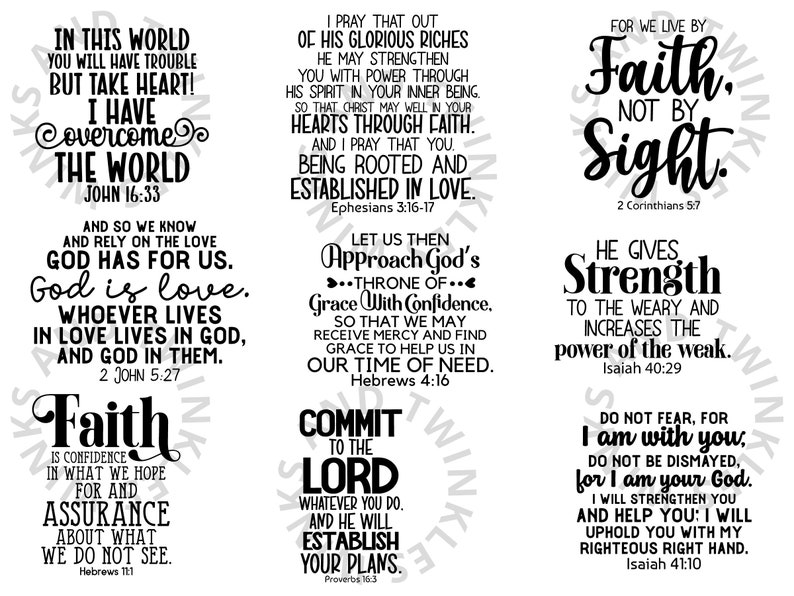 IN THIS WORLD
YOU WILL HAVE TROUBLE
BUT TAKE HEART!
I HAVE
overcome
THE WORLD
JOHN 16:33
I PRAY THAT OUT
OF HIS GLORIOUS RICHES
HE MAY STRENGTHEN
YOU WITH POWER THROUGH
HIS SPIRIT IN YOUR INNER BEING.
SO THAT CHRIST MAY WELL IN YOUR
HEARTS THROUGH FAITH.
AND I PRAY THAT YOU.
BEING ROOTED AND
ESTABLISHED IN LOVE.
Ephesians 3:16-17
FOR WE LIVE BY
Faith,
NOT BY
Sight.
2 Corinthians 5:7
AND SO WE KNOW
AND RELY ON THE LOVE
GOD HAS FOR US.
God is love.
WHOEVER LIVES
IN LOVE LIVES IN GOD,
AND GOD IN THEM.
2 JOHN 5:27
LET US THEN
Approach God's
THRONE OF
Grace With Confidence,
SO THAT WE MAY
RECEIVE MERCY AND FIND
GRACE TO HELP US IN
OUR TIME OF NEED.
Hebrews 4:16
HE GIVES
Strength
TO THE WEARY AND
INCREASES THE
power of the weak.
Isaiah 40:29
Faith
IS CONFIDENCE
IN WHAT WE HOPE
FOR AND
ASSURANCE
ABOUT WHAT
WE DO NOT SEE.
Hebrews 11:1
COMMIT
TO THE
LORD
WHATEVER YOU DO,
AND HE WILL
ESTABLISH
YOUR PLANS.
Proverbs 16:3
DO NOT FEAR, FOR
I am with you;
DO NOT BE DISMAYED,
for I am your God.
I WILL STRENGTHEN YOU
AND HELP YOU; I WILL
UPHOLD YOU WITH MY
RIGHTEOUS RIGHT HAND.
Isaiah 41:10